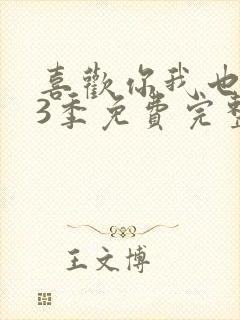 喜歡你我也
3季免費完整
王文博